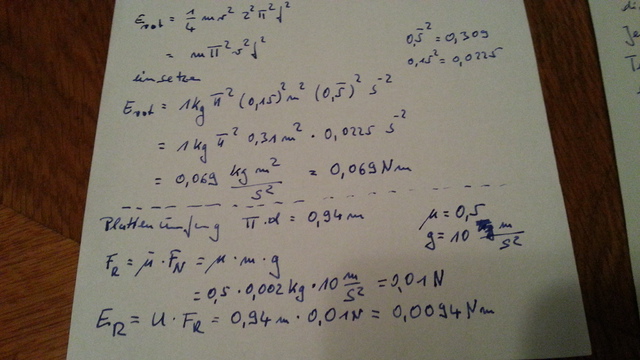 E_rot = 1/4 m r² 2² π² f²
= m π² r² f²
0,5̄² = 0,309
0,15² = 0,0225
einsetzen
E_rot = 1kg π² (0,15)² m² (0,5̄)² s⁻²
= 1kg π² 0,31 m² · 0,0225 s⁻²
= 0,069 kg m²/s² = 0,069 Nm
Plattenumfang π·d = 0,94m
μ = 0,5
g = 10 m/s²
F_R = μ · F_N = μ · m · g
= 0,5 · 0,002kg · 10 m/s² = 0,01 N
E_R = U · F_R = 0,94m · 0,01N = 0,0094 Nm